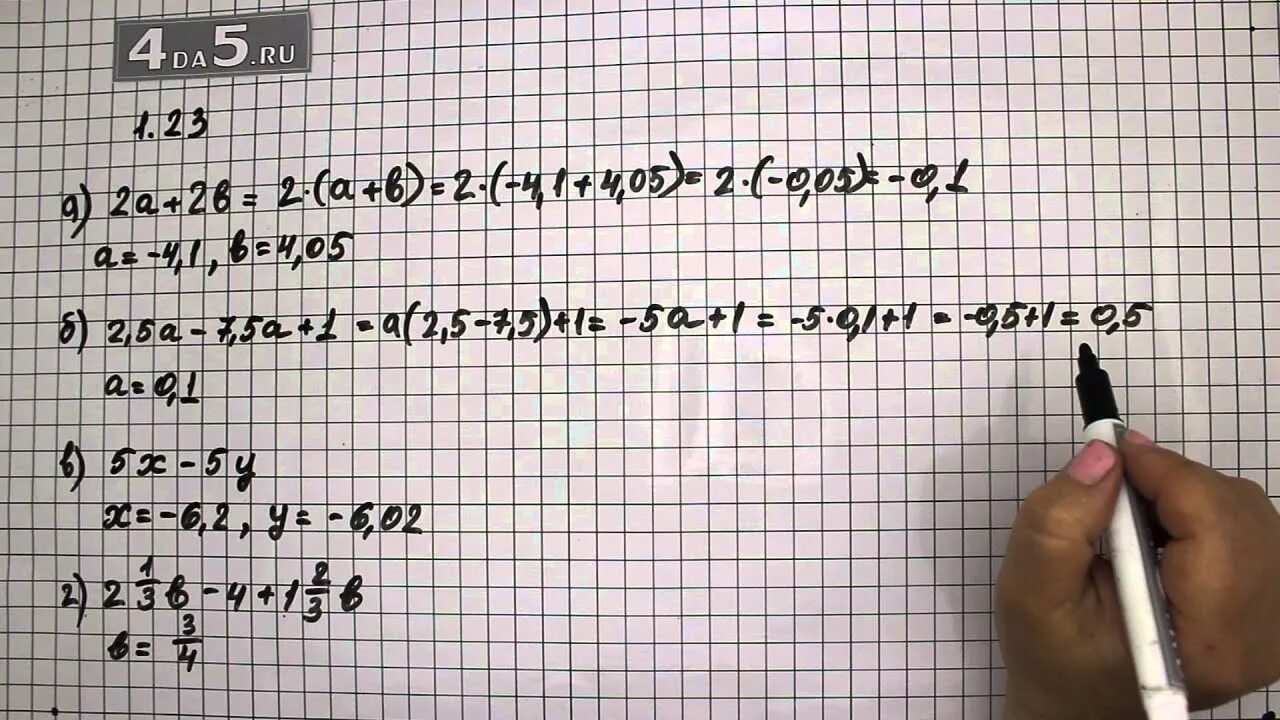 4DA5.RU
1.23
а) 2a+2в = 2·(a+в) = 2·(-4,1+4,05) = 2·(-0,05) = -0,1
a = -4,1, в = 4,05
б) 2,5a - 7,5a + 1 = a(2,5-7,5)+1 = -5a+1 = -5·0,1+1 = -0,5+1 = 0,5
a = 0,1
в) 5x - 5y
x = -6,2, y = -6,02
г) 2 1/3 в - 4 + 1 2/3 в
в = 3/4